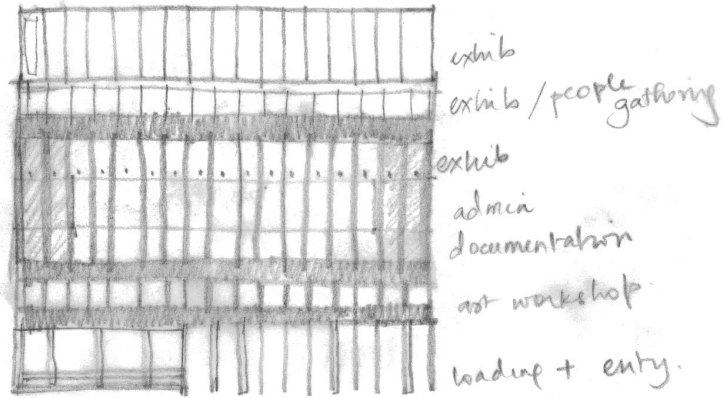 exhib
exhib / people gathering
exhib
admin
documentation
art workshop
loading + entry.